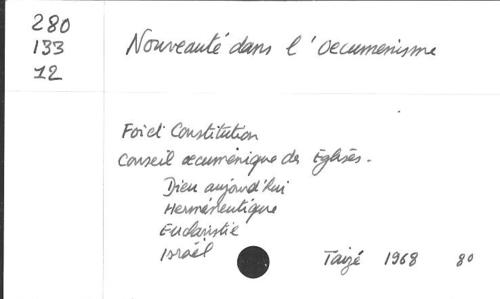 280
133
12
Nouveauté dans l'Oecuménisme
Foi et Constitution
Conseil œcuménique des Eglises.
Dieu aujourd'hui
Herméneutique
Eucharistie
Israël
Taizé 1968 80